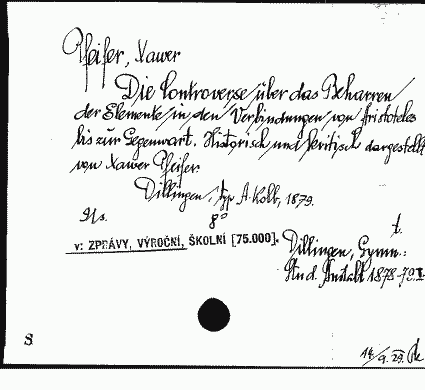 Pfeifer, Xawer
Die Controverse über das Beharren
der Elemente in den Verbindungen von Aristoteles
bis zur Gegenwart. Historisch und kritisch dargestellt
von Xawer Pfeifer.
Dillingen, typ. A. Kolb, 1879.
91 s. 8°
v: ZPRÁVY, VÝROČNÍ, ŠKOLNÍ [75.000].
Dillingen, Gymn.:
Stud. Anstalt 1878-79.
S
14/9. 29.